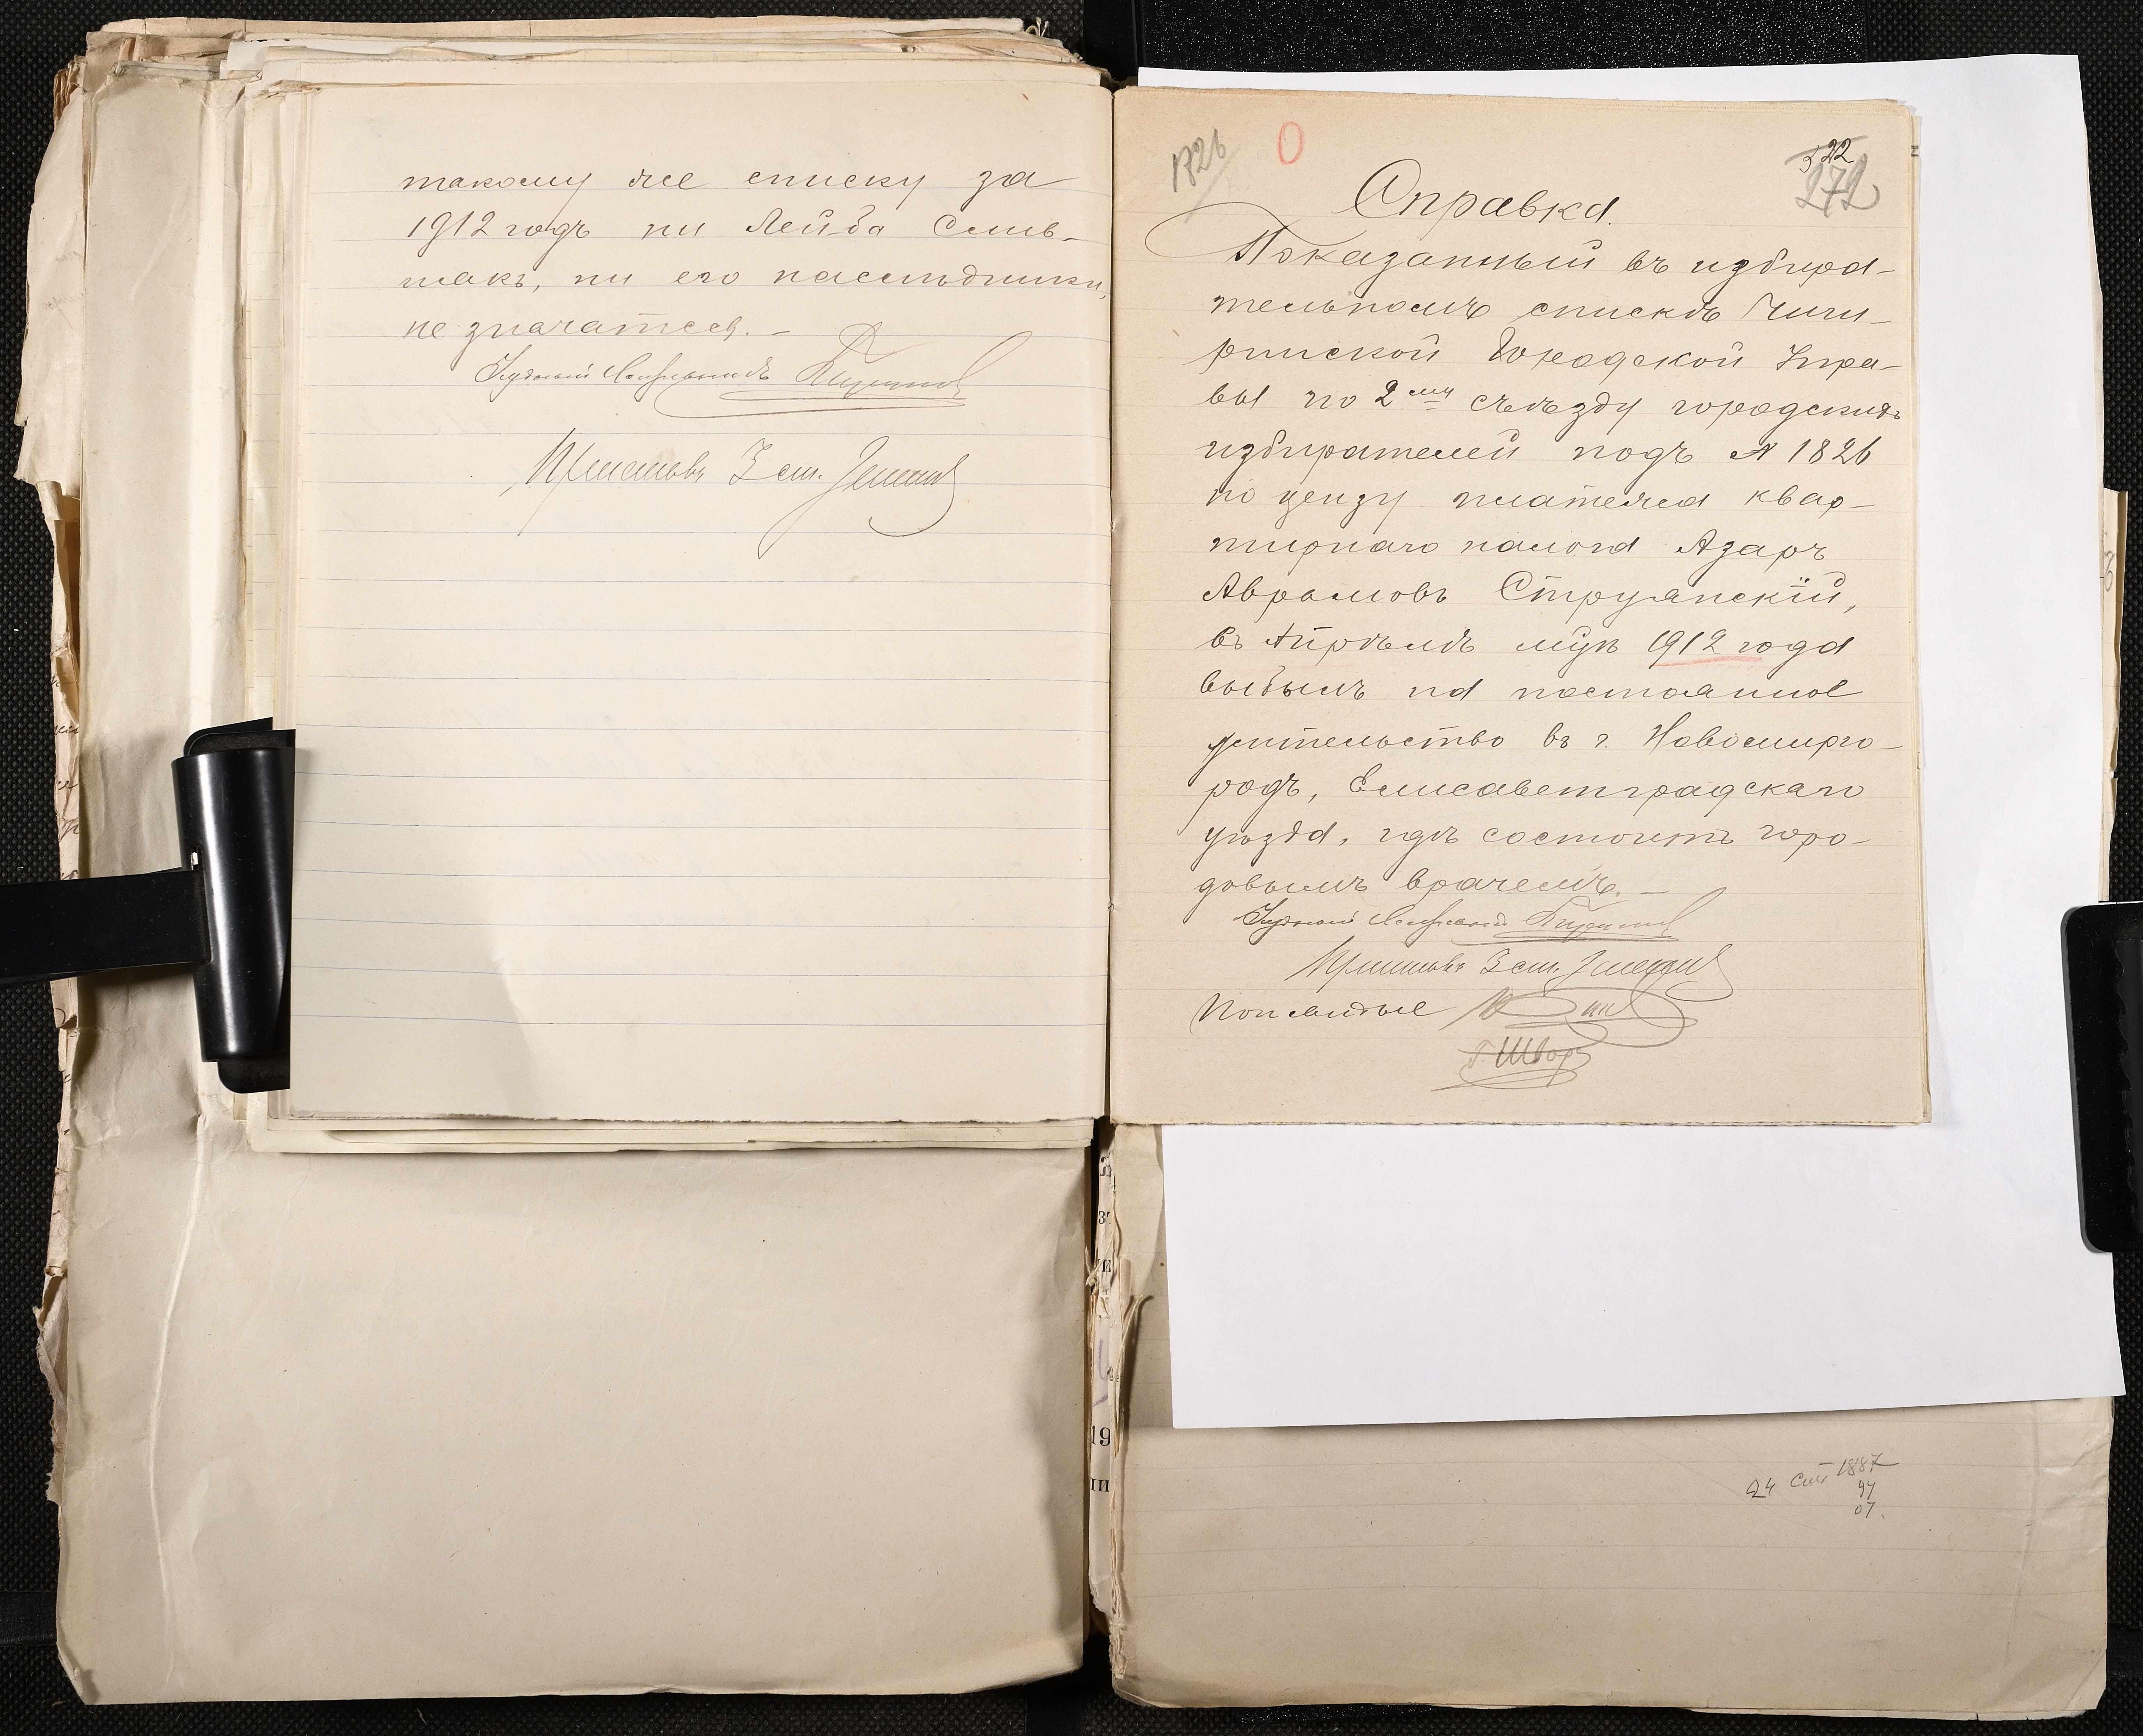 такому же списку за
1912 годъ ни Лейба Спив-
макъ, ни его наслѣдники,
не значатся. —
Уѣздный Исправникъ
Приставъ 3 ст.
1826
0
322
272
Справка.
Показанный въ избира-
тельномъ спискѣ Чиги-
ринской Городской Упра-
вы по 2му съѣзду городскихъ
избирателей подъ № 1826
по цензу платежа квар-
тирнаго налога Азаръ
Аврамовъ Струянскій,
въ Апрѣлѣ мцѣ 1912 года
выбылъ на постоянное
жительство въ г. Новомирго-
родъ, Елисаветградскаго
уѣзда, гдѣ состоитъ горо-
довымъ врачемъ. —
Уѣздный Исправникъ
Приставъ 3 ст.
Понятые
Г. Швор
24 1887
97
07.
19